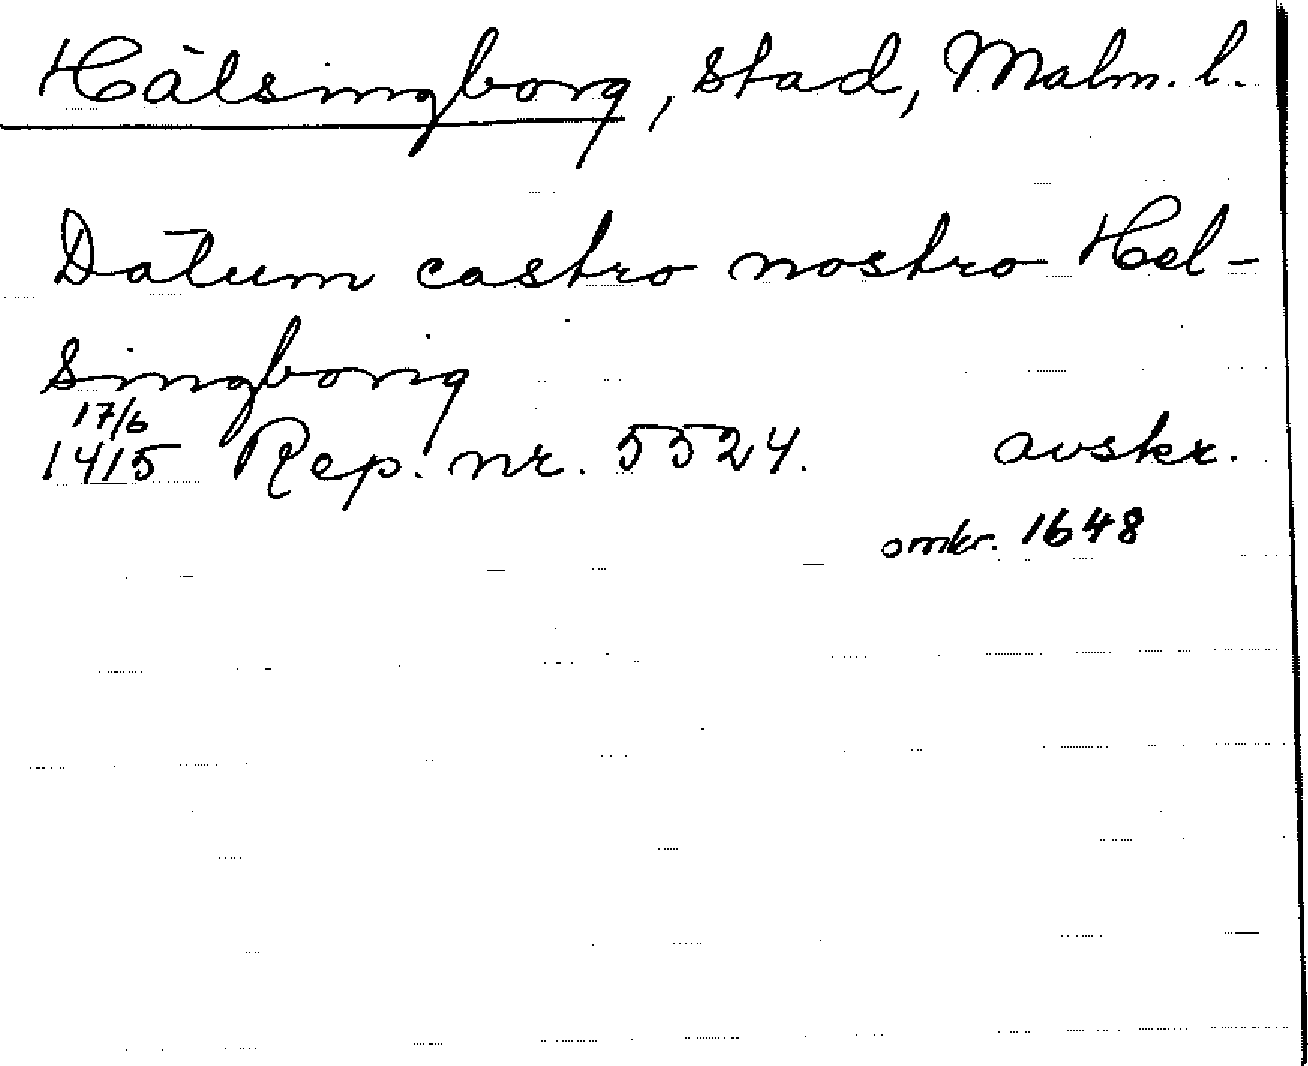 Hälsingborg, stad, Malm. l.
Datum castro nostro Hel-
singborg
17/6
1415 Rep. nr. 5524. avskr.
omkr. 1648